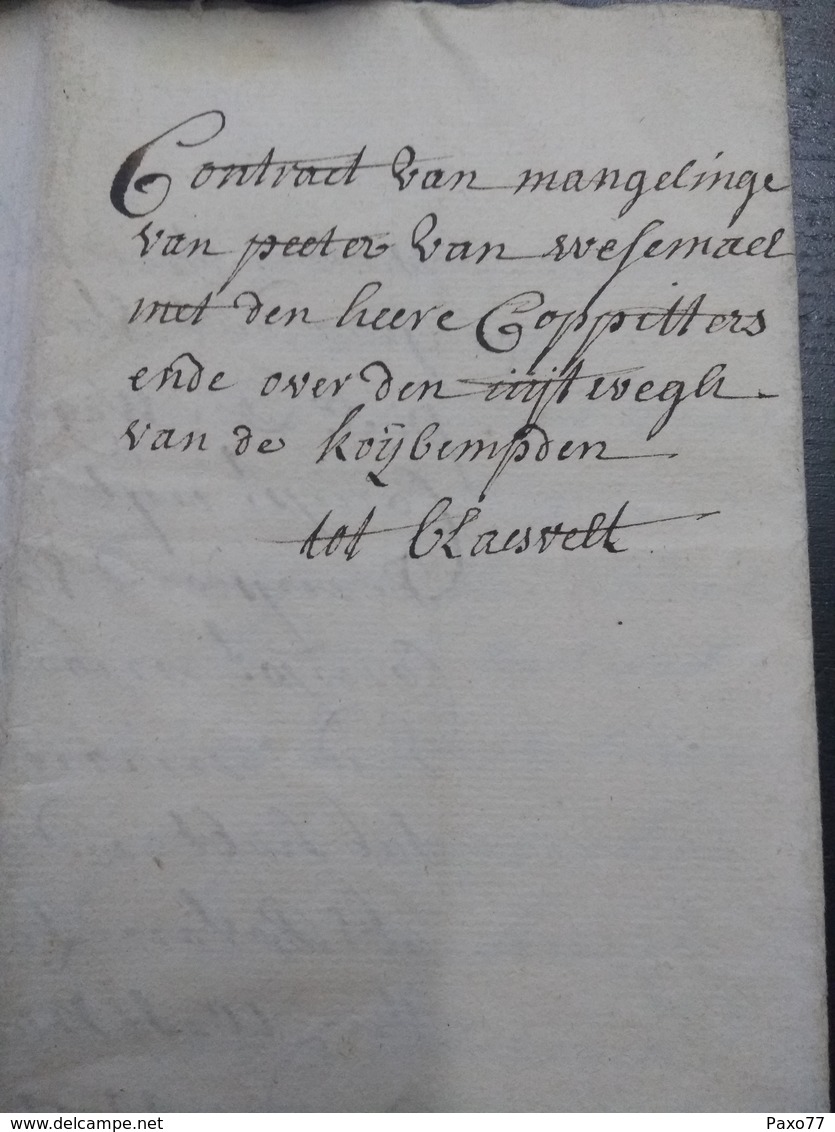 Contract van mangelinge
van peeter van wesemael
met den heere Coppitters
ende over den uijtwegh
van de koijbempden
tot blaesvelt
www.delcampe.net
Paxo77